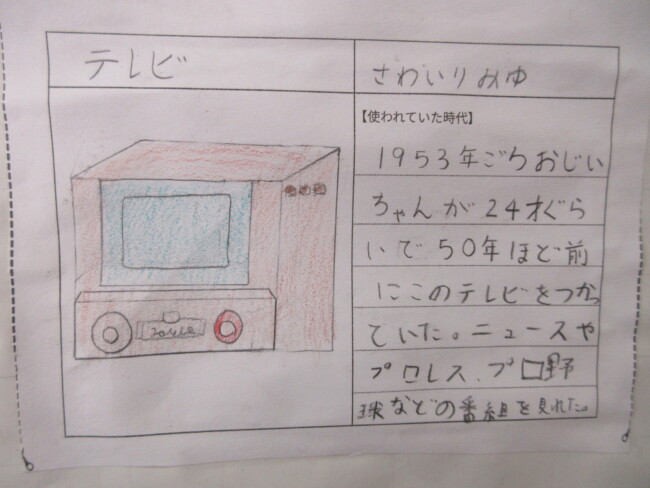 テレビ
さわいりみゆ
【使われていた時代】
1953年ごろおじい
ちゃんが24才ぐら
いで50年ほど前
にこのテレビをつかっ
ていた。ニュースや
プロレス、プロ野
球などの番組を見れた。